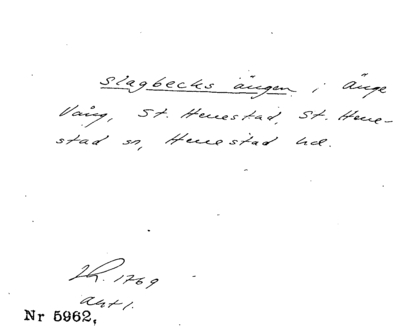 slagbecks ängen i Änge
Vång, St. Herrestad, St. Herre-
stad sn, Herrestad hd.
LR. 1769
akt 1.
Nr 5962,